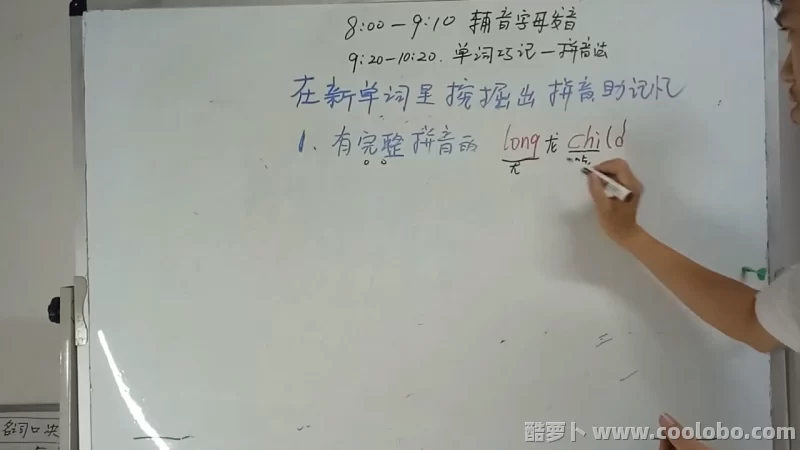 8:00—9:10 辅音字母发音
9:20-10:20. 单词巧记—拼音法
在新单词里挖掘出拼音助记忆
1. 有完整拼音的 long 龙 child
龙 吃
名词口决
酷萝卜 www.coolobo.com